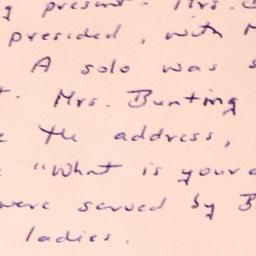 g present. Mrs.
presided, with
A solo was
Mrs. Bunting
the address,
"What is your
were served by
ladies.